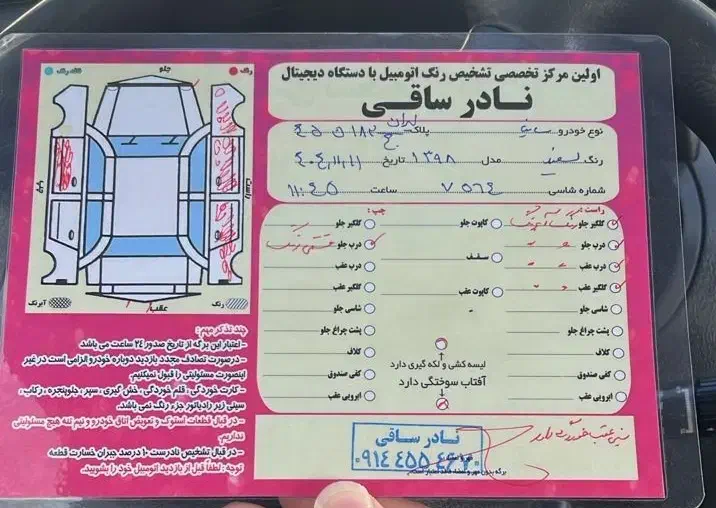 اولین مرکز تخصصی تشخیص رنگ اتومبیل با دستگاه دیجیتال
نادر ساقی
نوع خودرو ساینا پلاک ایران
رنگ سفید مدل ۱۳۹۸ تاریخ ۴۰۴,۱۱,۱۱
شماره شاسی ۷۵۶۴ ساعت ۱۱:۴۵
رنگ
نقاشه رنگ
جلو
راست
چپ
عقب
رنگ
آبرنگ
راست:
گلگیر جلو
درب جلو
درب عقب
گلگیر عقب
شاسی جلو
پشت چراغ جلو
کلاف
کفی صندوق
ابرویی عقب
کاپوت جلو
سقف
کاپوت عقب
لیسه کشی و لکه گیری دارد
آفتاب سوختگی دارد
چپ:
گلگیر جلو
درب جلو
درب عقب
گلگیر عقب
شاسی جلو
پشت چراغ جلو
کلاف
کفی صندوق
ابرویی عقب
چند تذکر مهم:
- اعتبار این برگه از تاریخ صدور ۲۴ ساعت می باشد
- درصورت تصادف مجدد بازدید دوباره خودرو الزامی است در غیر
اینصورت مسئولیتی را قبول نمیکنیم.
- کارت خوردگی، قلم خوردگی، خش گیری، سپر، جلوپنجره، رکاب،
سینی زیر رادیاتور جزء رنگ نمی باشد.
- در قبال قطعات استوک و تعویض اتاق خودرو و نیم تنه هیچ مسئولیتی
نداریم.
- در قبال تشخیص نادرست ۱۰ درصد جبران خسارت قطعه
توجه لطفاً قبل از بازدید اتومبیل خود را بشویید.
نادر ساقی
سینی عقب خوردگی دارد